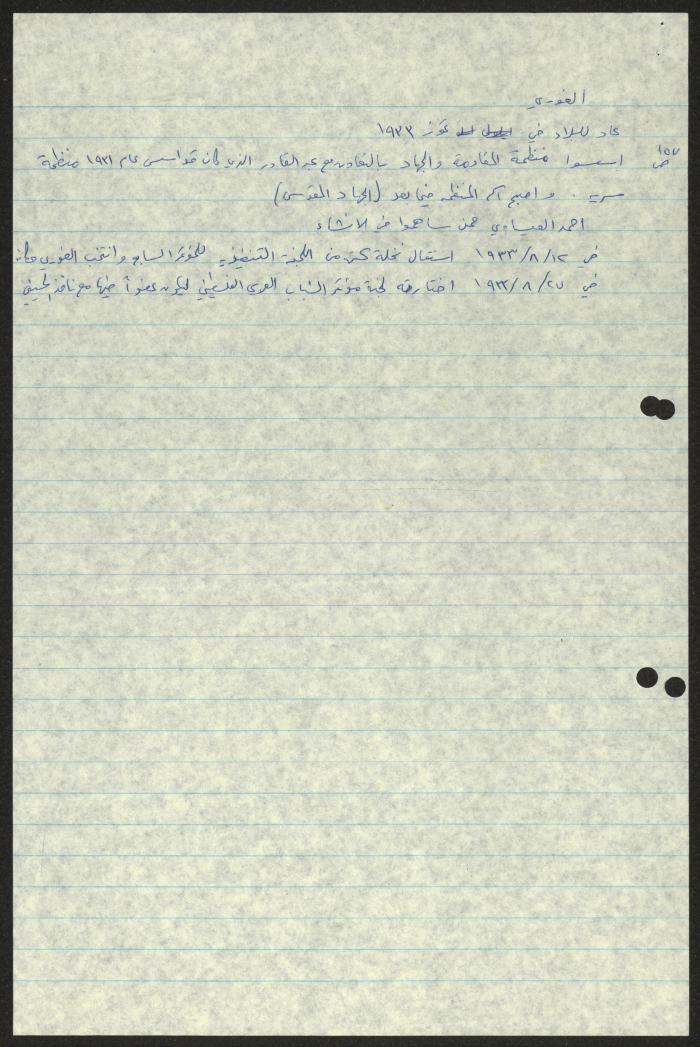 الغوري
عاد للبلاد في تموز ١٩٣٣
ص ١٥٧ اسسوا منظمة المقاومة والجهاد بالتعاون مع عبد القادر الذي كان قد اسس عام ١٩٣١ منظمة
سرية . واصبح اسم المنظمة فيما بعد (الجهاد المقدس)
احمد العيساوي ممن ساهموا في الانشاء
في ١٢/٨/١٩٣٣ استقال نخلة كتن من اللجنة التنفيذية للمؤتمر السابع وانتخب الغوري مكانه
في ٢٧/٨/١٩٣٣ اختارته لجنة مؤتمر الشباب العربي الفلسطيني ليكون عضواً فيها مع نافذ الحسيني